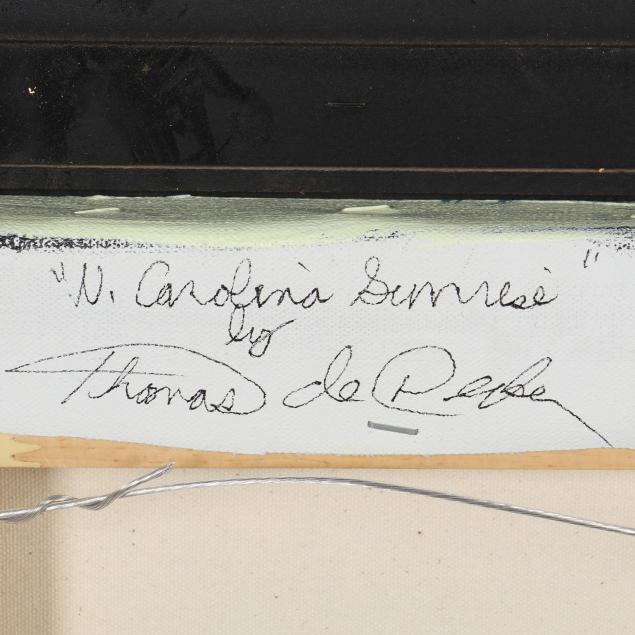 "N. Carolina Sunrise"
by
Thomas de Decker